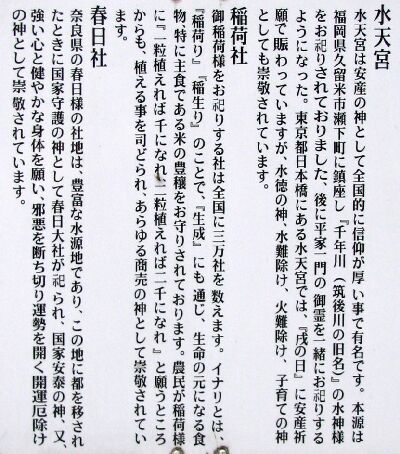 水天宮
水天宮は安産の神として全国的に信仰が厚い事で有名です。本源は
福岡県久留米市瀬下町に鎮座し『千年川(筑後川の旧名)』の水神様
をお祀りされておりました、後に平家一門の御霊を一緒にお祀りする
ようになった。東京都日本橋にある水天宮では、『戌の日』に安産祈
願で賑わっていますが、水徳の神、水難除け、火難除け、子育ての神
としても崇敬されています。
稲荷社
御稲荷様をお祀りする社は全国に三万社を数えます。イナリとは、
『稲荷り』『稲生り』のことで、『生成』にも通じ、生命の元になる食
物、特に主食である米の豊穣をお守りされております。農民が稲荷様
に『一粒植えれば千になれ、二粒植えれば二千になれ』と願うところ
からも、植える事を司どられ、あらゆる商売の神として崇敬されてい
ます。
春日社
奈良県の春日様の社地は、豊富な水源地であり、この地に都を移され
たときに国家守護の神として春日大社が祀られ、国家安泰の神、又、
強い心と健やかな身体を願い、邪悪を断ち切り運勢を開く開運厄除け
の神として崇敬されています。